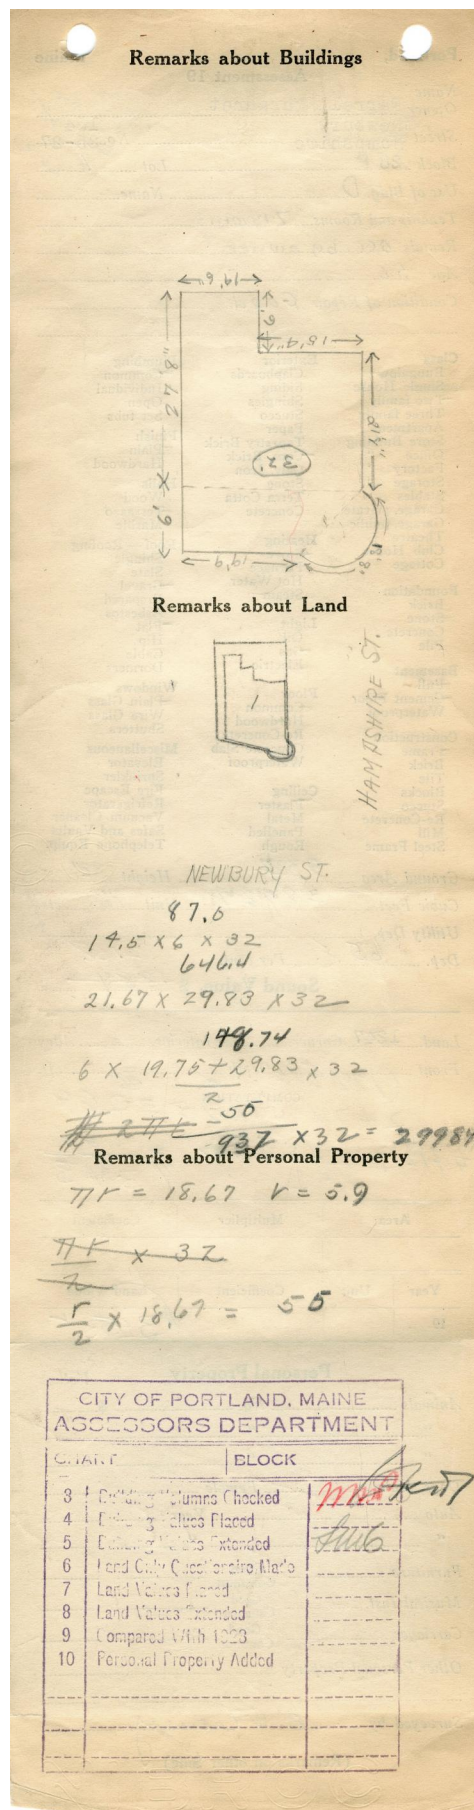 Remarks about Buildings
14'6"
6'
15'4"
27'8"
21'8"
32'
6'
19'9"
18'8"
Remarks about Land
1
HAMPSHIRE ST.
NEWBURY ST.
87.0
14.5 x 6 x 32
646.4
21.67 x 29.83 x 32
148.74
6 x 19.75 + 29.83 x 32
2
55
937 x 32 = 29984
Remarks about Personal Property
πr = 18.67 r = 5.9
πr x 32
2
r/2 x 18.67 = 55
CITY OF PORTLAND, MAINE
ASSESSORS DEPARTMENT
CHART BLOCK
3 Building Columns Checked
4 Building Values Placed
5 Building Values Extended
6 Land Only Questionaire Made
7 Land Values Placed
8 Land Values Extended
9 Compared With 1923
10 Personal Property Added